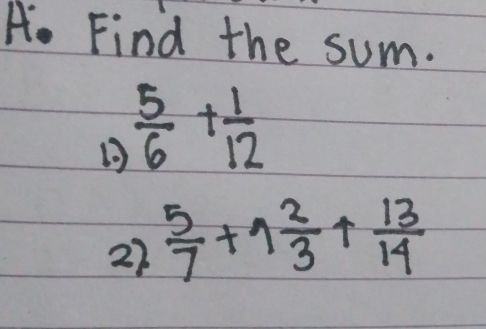 A. Find the sum.
1.) 5/6 + 1/12
2.) 5/7 + 1 2/3 + 13/14